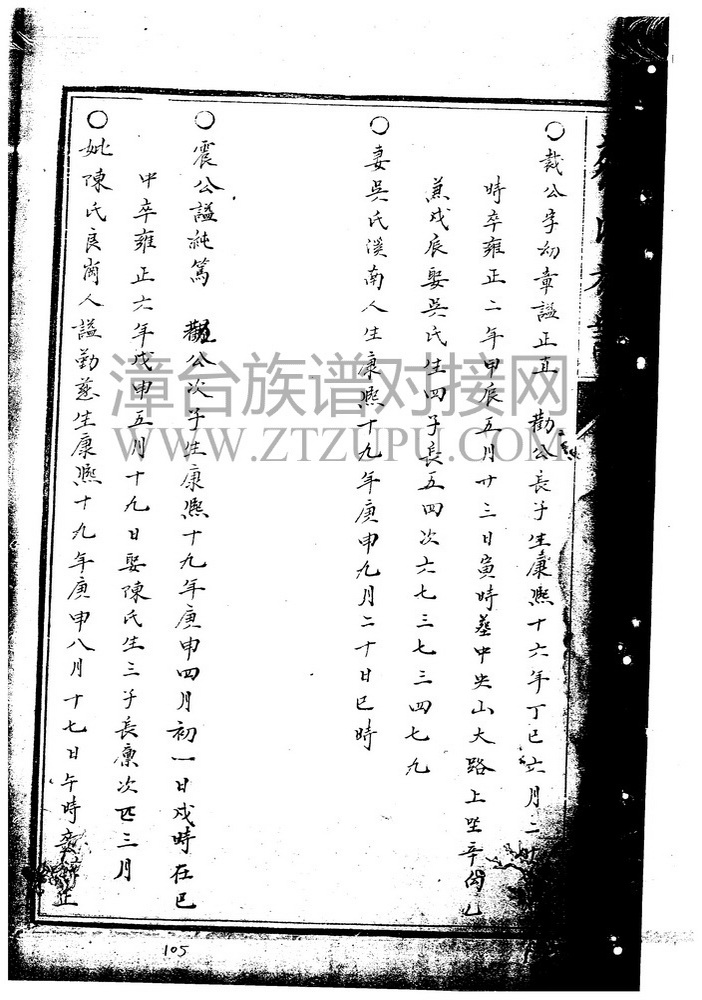 ○載公字幼章諡正直 勸公長子生康熙十六年丁巳六月二
時卒雍正二年甲辰五月廿三日寅時墓中央山大路上坐辛向乙
兼戌辰娶吳氏生四子長五四次六七三七三四七九
○妻吳氏溪南人生康熙十九年庚申九月二十日巳時
○震公諡純篤 勸公次子生康熙十九年庚申四月初一日戌時在巳
中卒雍正六年戊申五月十九日娶陳氏生三子長廩次匹三月
○妣陳氏良崗人諡勤慈生康熙十九年庚申八月十七日午時卒雍正
漳台族谱对接网
WWW.ZTZUPU.COM
105